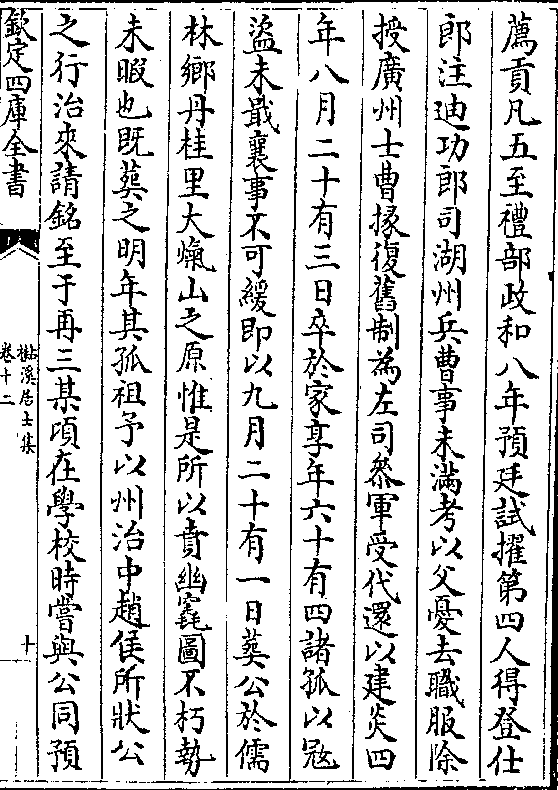 薦貢凡五至禮部政和八年預廷試擢第四人得登仕
郎注迪功郎司湖州兵曹事未滿考以父憂去職服除
授廣州士曹掾復舊制為左司叅軍受代還以建炎四
年八月二十有三日卒於家享年六十有四諸孤以冦
盜未戢襄事不可緩即以九月二十有一日葬公於儒
林鄉丹桂里大嶺山之原惟是所以賁幽竁圖不朽勢
未暇也既葬之明年其孤祖予以州治中趙侯所狀公
之行治來請銘至于再三某頃在學校時嘗與公同預
欽定四庫全書
苕溪居士集
卷十二
十